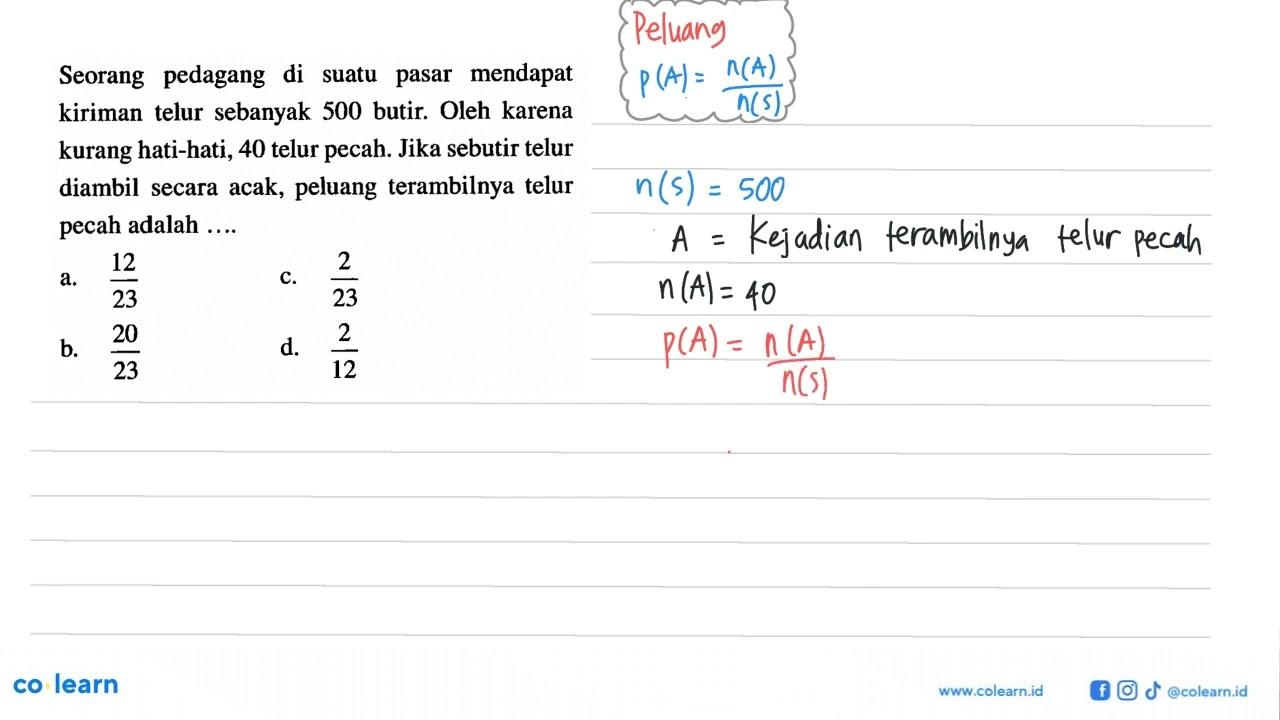 Seorang pedagang di suatu pasar mendapat
kiriman telur sebanyak 500 butir. Oleh karena
kurang hati-hati, 40 telur pecah. Jika sebutir telur
diambil secara acak, peluang terambilnya telur
pecah adalah ....
a. 12/23 c. 2/23
b. 20/23 d. 2/12
Peluang
p(A) = n(A)/n(s)
n(s) = 500
A = Kejadian terambilnya telur pecah
n(A) = 40
p(A) = n(A)/n(s)
co learn
www.colearn.id @colearn.id